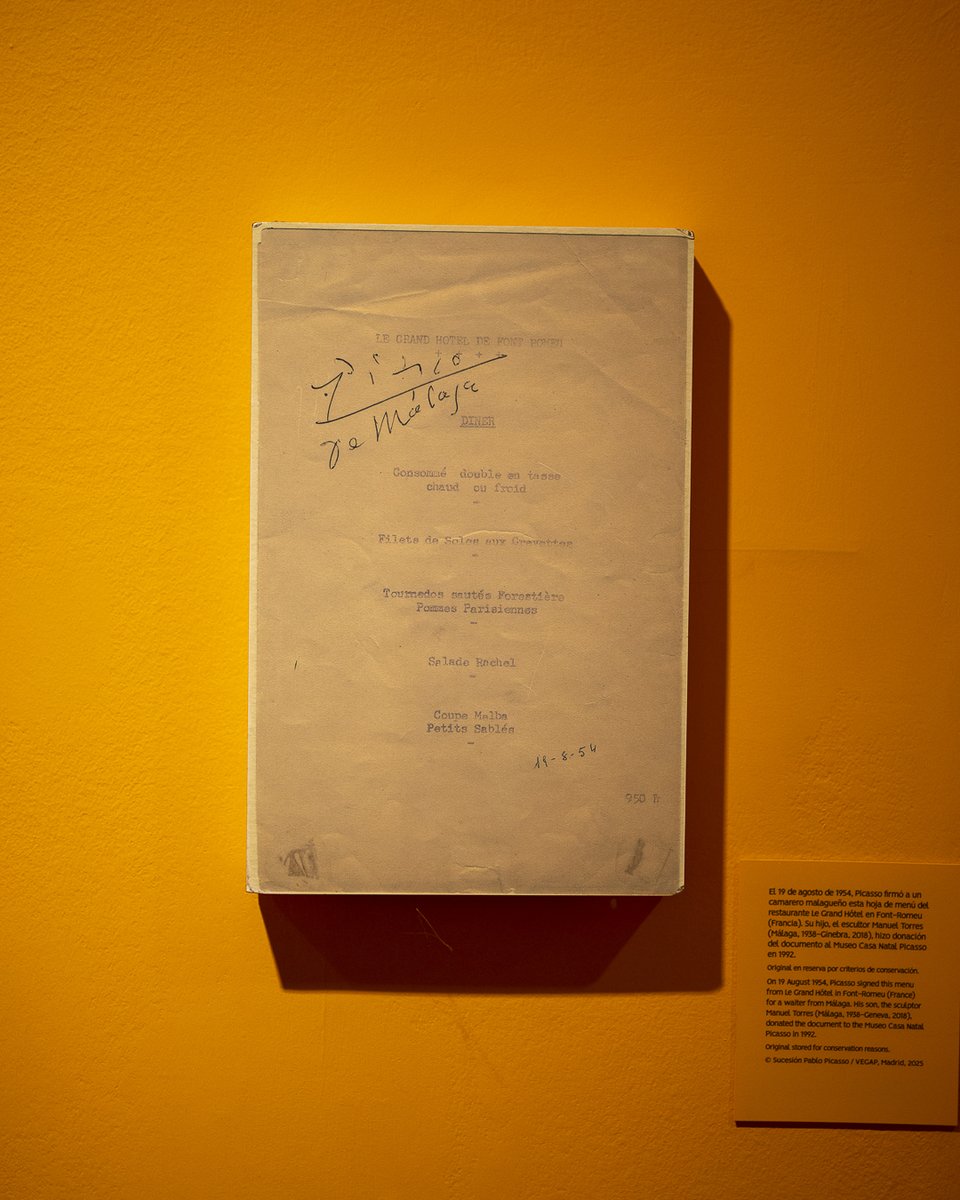 LE GRAND HOTEL DE FONT ROMEU
+ + + +
de Málaga
DINER
Consommé double en tasse
chaud ou froid
-
Filets de Soles aux Crevettes
-
Tournedos sautés Forestière
Pommes Parisiennes
-
Salade Rachel
-
Coupe Melba
Petits Sablés
-
19-8-54
950 Fr
El 19 de agosto de 1954, Picasso firmó a un
camarero malagueño esta hoja de menú del
restaurante Le Grand Hôtel en Font-Romeu
(Francia). Su hijo, el escultor Manuel Torres
(Málaga, 1938-Ginebra, 2018), hizo donación
del documento al Museo Casa Natal Picasso
en 1992.
Original en reserva por criterios de conservación.
On 19 August 1954, Picasso signed this menu
from Le Grand Hôtel in Font-Romeu (France)
for a waiter from Málaga. His son, the sculptor
Manuel Torres (Málaga, 1938-Geneva, 2018),
donated the document to the Museo Casa Natal
Picasso in 1992.
Original stored for conservation reasons.
© Sucesión Pablo Picasso / VEGAP, Madrid, 2025